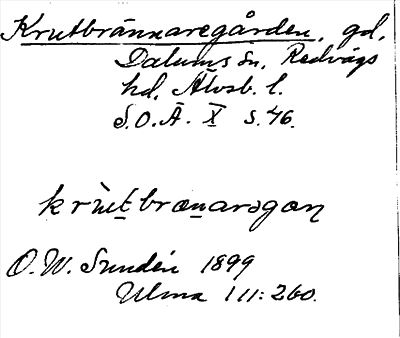 Krutbrännaregården, gd,
Dalums sn, Redvägs
hd, Älvsb. l.
S.O.Ä. X s. 46.
krùtbrænaregaɳ
O.W. Sundén 1899
Ulma 111:260.